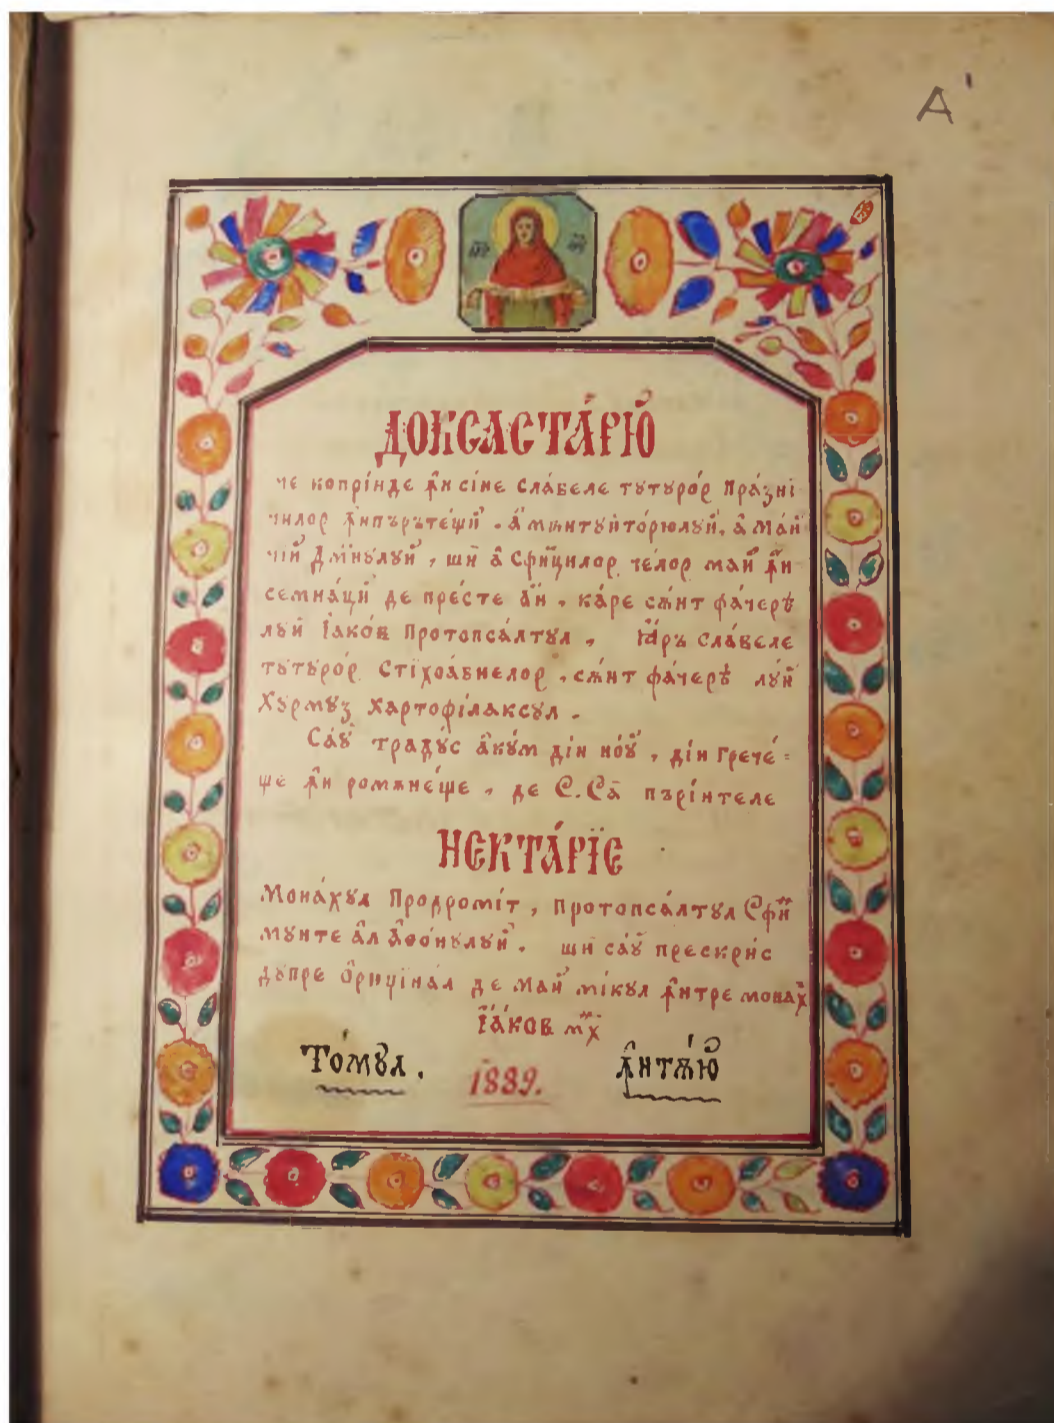 А'
ДОКСАСТА́РЮ̆
че копрі́нде ꙟ҆н сі́не сла́веле тꙋтꙋро́р Пра́зні
чилор ꙟ҆мпъръте́щй . а҆ мѫнтꙋйто́рюлꙋй, а҆ Ма́й
чій Дм҃нꙋлꙋй , ши а҆ Сфи҃цилор че́лор май ꙟ҆н
семна́ци де пре́сте а҆н , ка́ре сѫ́нт фа́черѣ
лꙋй І҆а́ков Протопса́лтꙋл , Ꙗ҆ръ сла́веле
тꙋтꙋро́р Стїхоа́внелор , сѫ́нт фа́черѣ лꙋ́й
Хꙋрмꙋз хартофі́лаксꙋл .
Са́ꙋ традꙋ́с а҆кꙋ́м ді́н но́ꙋ , ді́н Грече́=
ще ꙟ҆н ромѫне́ще , де С. Са҃ пърі́нтеле
НЕКТА́РЇЕ
Мона́хꙋл Продромі́т , протопса́лтꙋл Сфи҃
мꙋнте а҆л а҆ѳо́нꙋлꙋй . ши са́ꙋ прескри́с
дꙋпре О҆риџіна́л де май мі́кꙋл ꙟ҆нтре мона́х҃
І҆а́ков м҃х
То́мꙋл . 1889. ꙟ҆нтѫ́ю̆